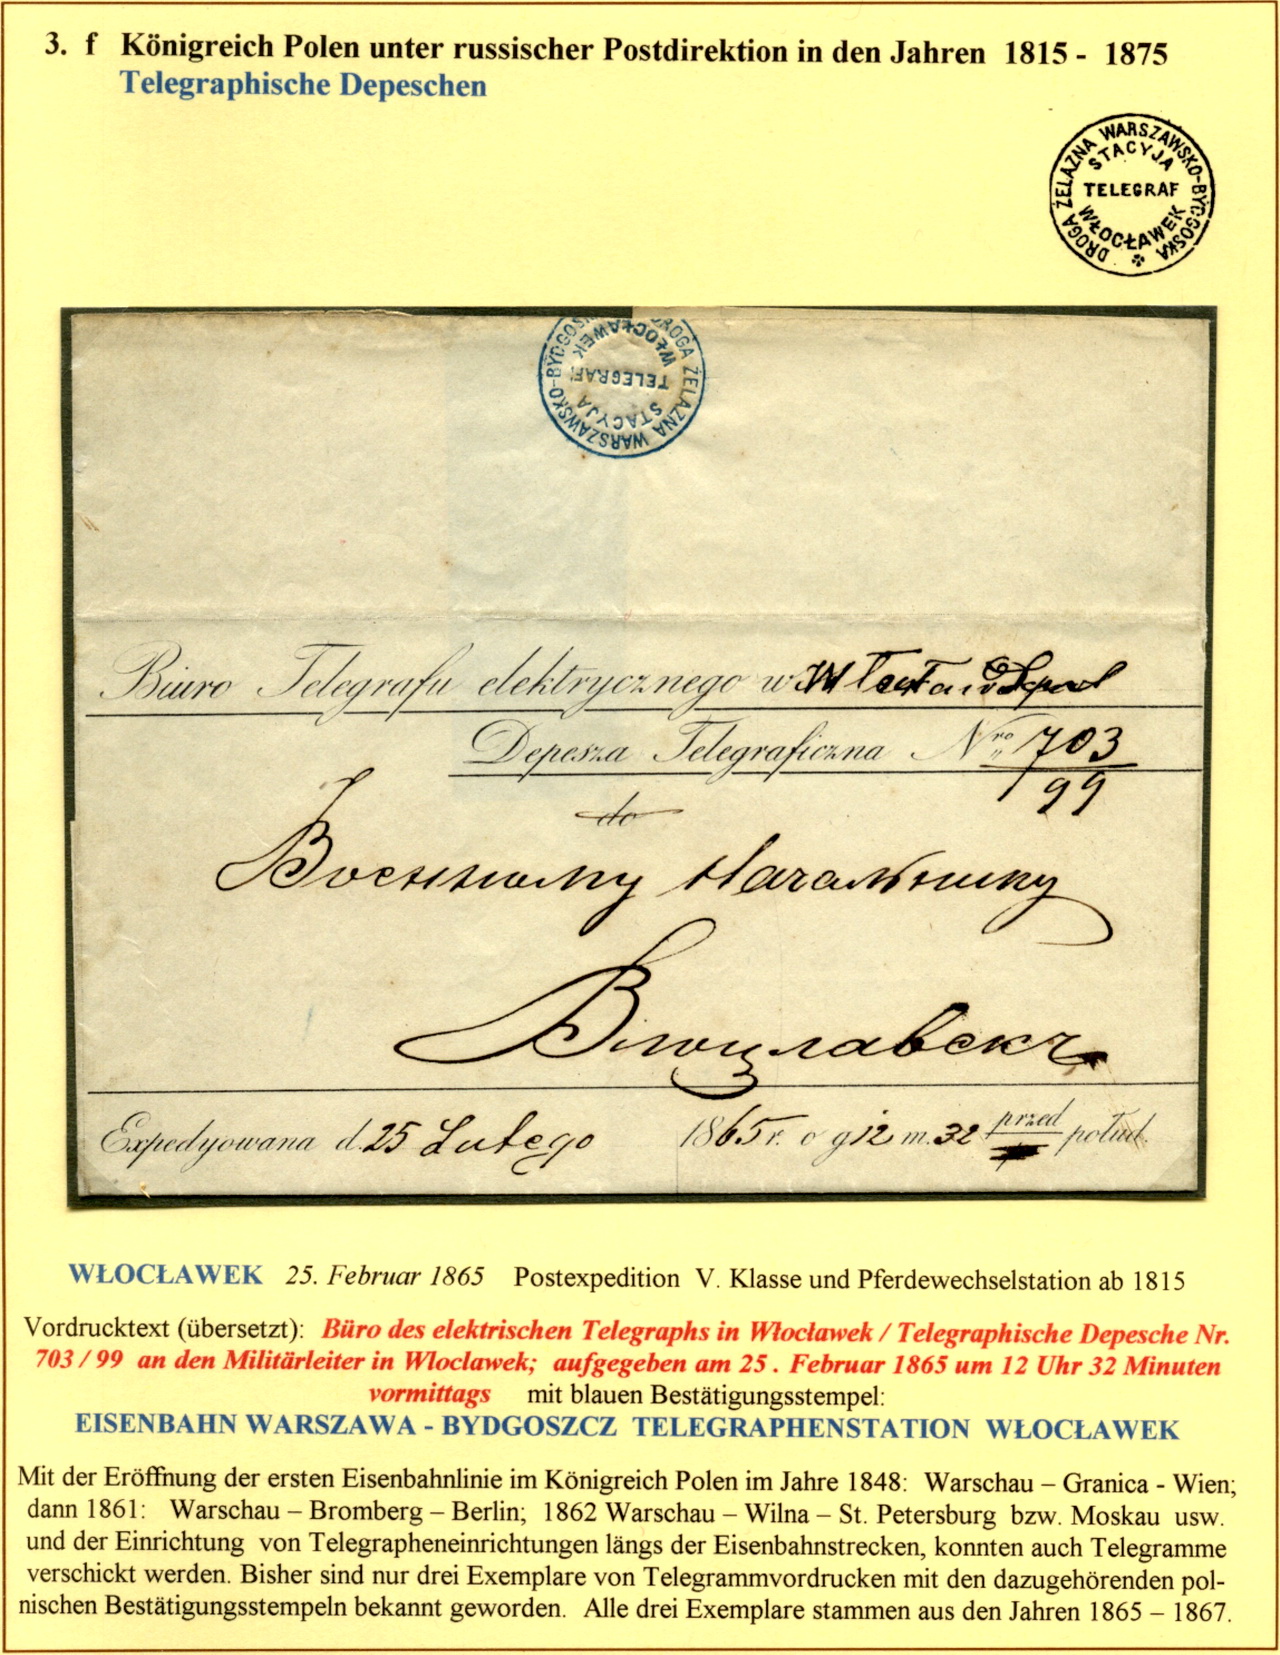 3. f Königreich Polen unter russischer Postdirektion in den Jahren 1815 - 1875
Telegraphische Depeschen
DROGA ŻELAZNA WARSZAWSKO-BYDGOSKA
STACYJA
TELEGRAF
WŁOCŁAWEK
DROGA ŻELAZNA WARSZAWSKO-BYDGOS
STACYJA
TELEGRAF
WŁOCŁAWEK
Biuro Telegrafu elektrycznego w
Depesza Telegraficzna Nro 703
99
do
Военному Начальнику
Влоцлавскъ
Expedyowana d. 25 Lutego 1865 r. o g 12 m. 32 przed połud.
WŁOCŁAWEK 25. Februar 1865 Postexpedition V. Klasse und Pferdewechselstation ab 1815
Vordrucktext (übersetzt): Büro des elektrischen Telegraphs in Włocławek / Telegraphische Depesche Nr.
703 / 99 an den Militärleiter in Wloclawek; aufgegeben am 25 . Februar 1865 um 12 Uhr 32 Minuten
vormittags mit blauen Bestätigungsstempel:
EISENBAHN WARSZAWA - BYDGOSZCZ TELEGRAPHENSTATION WŁOCŁAWEK
Mit der Eröffnung der ersten Eisenbahnlinie im Königreich Polen im Jahre 1848: Warschau – Granica - Wien;
dann 1861: Warschau – Bromberg – Berlin; 1862 Warschau – Wilna – St. Petersburg bzw. Moskau usw.
und der Einrichtung von Telegrapheneinrichtungen längs der Eisenbahnstrecken, konnten auch Telegramme
verschickt werden. Bisher sind nur drei Exemplare von Telegrammvordrucken mit den dazugehörenden pol-
nischen Bestätigungsstempeln bekannt geworden. Alle drei Exemplare stammen aus den Jahren 1865 – 1867.